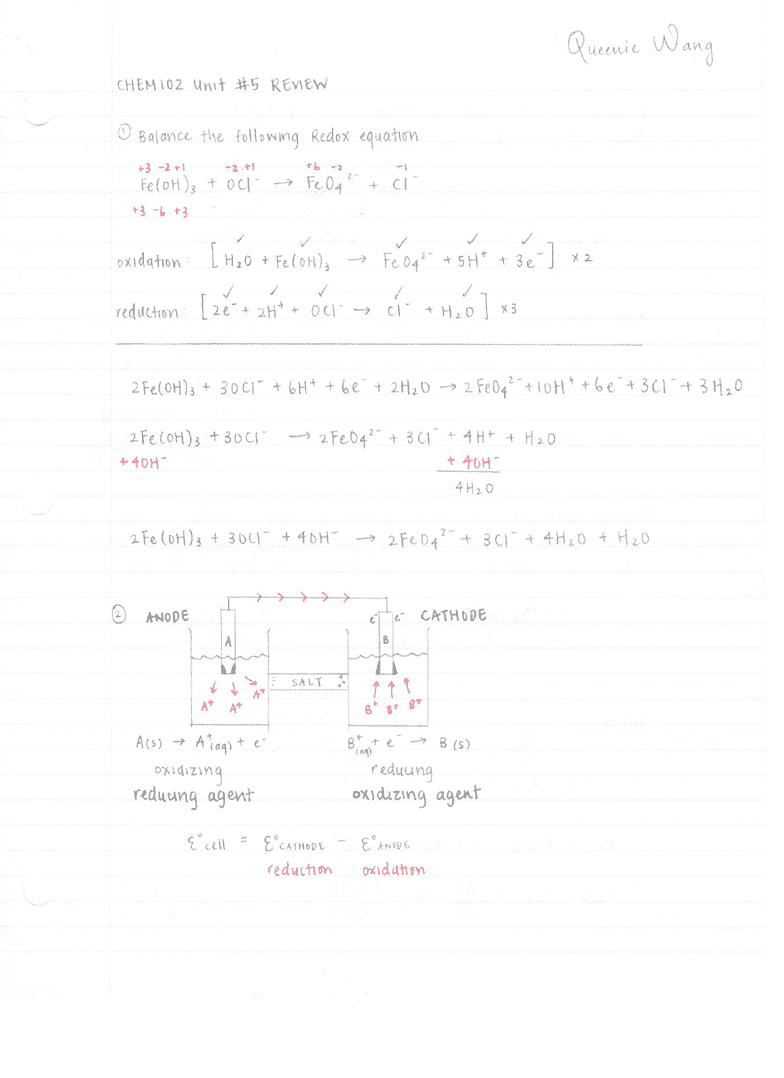 Queenie Wang
CHEM102 Unit #5 REVIEW
① Balance the following Redox equation
+3 -2 +1 -2 +1 +6 -2 -1
Fe(OH)₃ + OCl⁻ → FeO₄²⁻ + Cl⁻
+3 -6 +3
oxidation: [H₂O + Fe(OH)₃ → FeO₄²⁻ + 5H⁺ + 3e⁻] x2
reduction: [2e⁻ + 2H⁺ + OCl⁻ → Cl⁻ + H₂O] x3
2Fe(OH)₃ + 3OCl⁻ + 6H⁺ + 6e⁻ + 2H₂O → 2FeO₄²⁻ + 10H⁺ + 6e⁻ + 3Cl⁻ + 3H₂O
2Fe(OH)₃ + 3OCl⁻ → 2FeO₄²⁻ + 3Cl⁻ + 4H⁺ + H₂O
+4OH⁻ + 4OH⁻
4H₂O
2Fe(OH)₃ + 3OCl⁻ + 4OH⁻ → 2FeO₄²⁻ + 3Cl⁻ + 4H₂O + H₂O
② ANODE e⁻ e⁻ CATHODE
A B
SALT
A⁺ A⁺ A⁺ B⁺ B⁺ B⁺
A(s) → A⁺(aq) + e⁻ B⁺(aq) + e⁻ → B(s)
oxidizing reducing
reducing agent oxidizing agent
ε°cell = ε°CATHODE - ε°ANODE
reduction oxidation